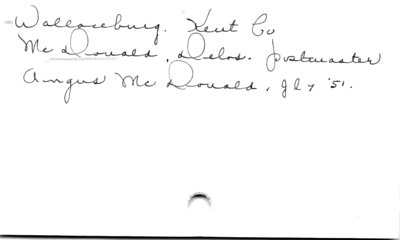 Wallaceburg. Kent Co
Mc Donald, Delos. postmaster
Angus Mc Donald, Jly '51.